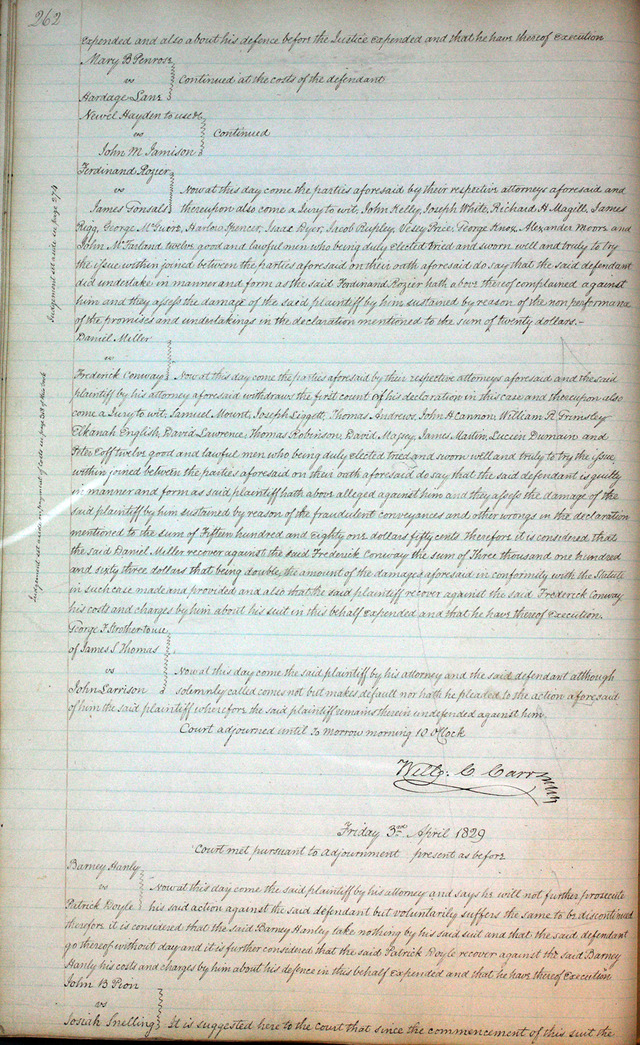 262
expended and also about his defence before the Justice expended and that he have thereof execution
Mary B Penrose
vs
Continued at the costs of the defendant
Hardage Lane
Newel Hayden to use &c
vs
Continued
John M Jamison
Ferdinand Rozier
vs
Now at this day come the parties aforesaid by their respective attorneys aforesaid and
James Tonsals
thereupon also come a Jury to wit, John Kelly, Joseph White, Richard H Magill, James
Rigg, George McGuire, Harlow Spencer, Isaac Dyer, Jacob Ripley, Vesey Price, George Knox, Alexander Moore and
John McFarland twelve good and lawful men who being duly elected tried and sworn well and truly to try
the issue within joined between the parties aforesaid on their oath aforesaid do say that the said defendant
did undertake in manner and form as the said Ferdinand Rozier hath above thereof complained against
him and they assess the damage of the said plaintiff by him sustained by reason of the non performance
of the promises and undertakings in the declaration mentioned to the sum of twenty dollars.-
Judgement set aside see page 274
Daniel Miller
vs
Frederick Conway
Now at this day come the parties aforesaid by their respective attorneys aforesaid and the said
plaintiff by his attorney aforesaid withdraws the first count of his declaration in this case and thereupon also
come a Jury to wit, Samuel Mount, Joseph Liggett, Thomas Andrews, John H Cannon, William R Grimsley
Elkanah English, David Lawrence, Thomas Robinson, David Massey, James Martin, Lucien Dumain and
twelve good and lawful men who being duly elected tried and sworn well and truly to try the issue
within joined between the parties aforesaid on their oath aforesaid do say that the said defendant is guilty
in manner and form as said plaintiff hath above alleged against him and they assess the damage of the
said plaintiff by him sustained by reason of the fraudulent conveyances and other wrongs in the declaration
mentioned to the sum of Fifteen hundred and eighty one dollars fifty cents therefore it is considered that
the said Daniel Miller recover against the said Frederick Conway the sum of Three thousand one hundred
and sixty three dollars that being double the amount of the damages aforesaid in conformity with the Statute
in such case made and provided and also that the said plaintiff recover against the said Frederick Conway
his costs and charges by him about his suit in this behalf expended and that he have thereof execution.
Judgement set aside on payment of costs see page of this book
George F Strother to use
of James S Thomas
vs
Now at this day come the said plaintiff by his attorney and the said defendant although
John Sarrison
solemnly called comes not but makes default nor hath he pleaded to the action aforesaid
of him the said plaintiff wherefore the said plaintiff remains therein undefended against him
Court adjourned until To morrow morning 10 O'Clock
Will. C Carr
Friday 3rd April 1829
Court met pursuant to adjournment present as before
Barney Hanly
vs
Now at this day come the said plaintiff by his attorney and says he will not further prosecute
Patrick Doyle
his said action against the said defendant but voluntarily suffers the same to be discontinued
therefore it is considered that the said Barney Hanley take nothing by his said suit and that the said defendant
go thereof without day and it is further considered that the said Patrick Doyle recover against the said Barney
Hanly his costs and charges by him about his defence in this behalf expended and that he have thereof execution
John B Pion
vs
Josiah Snelling
It is suggested here to the court that since the commencement of this suit the